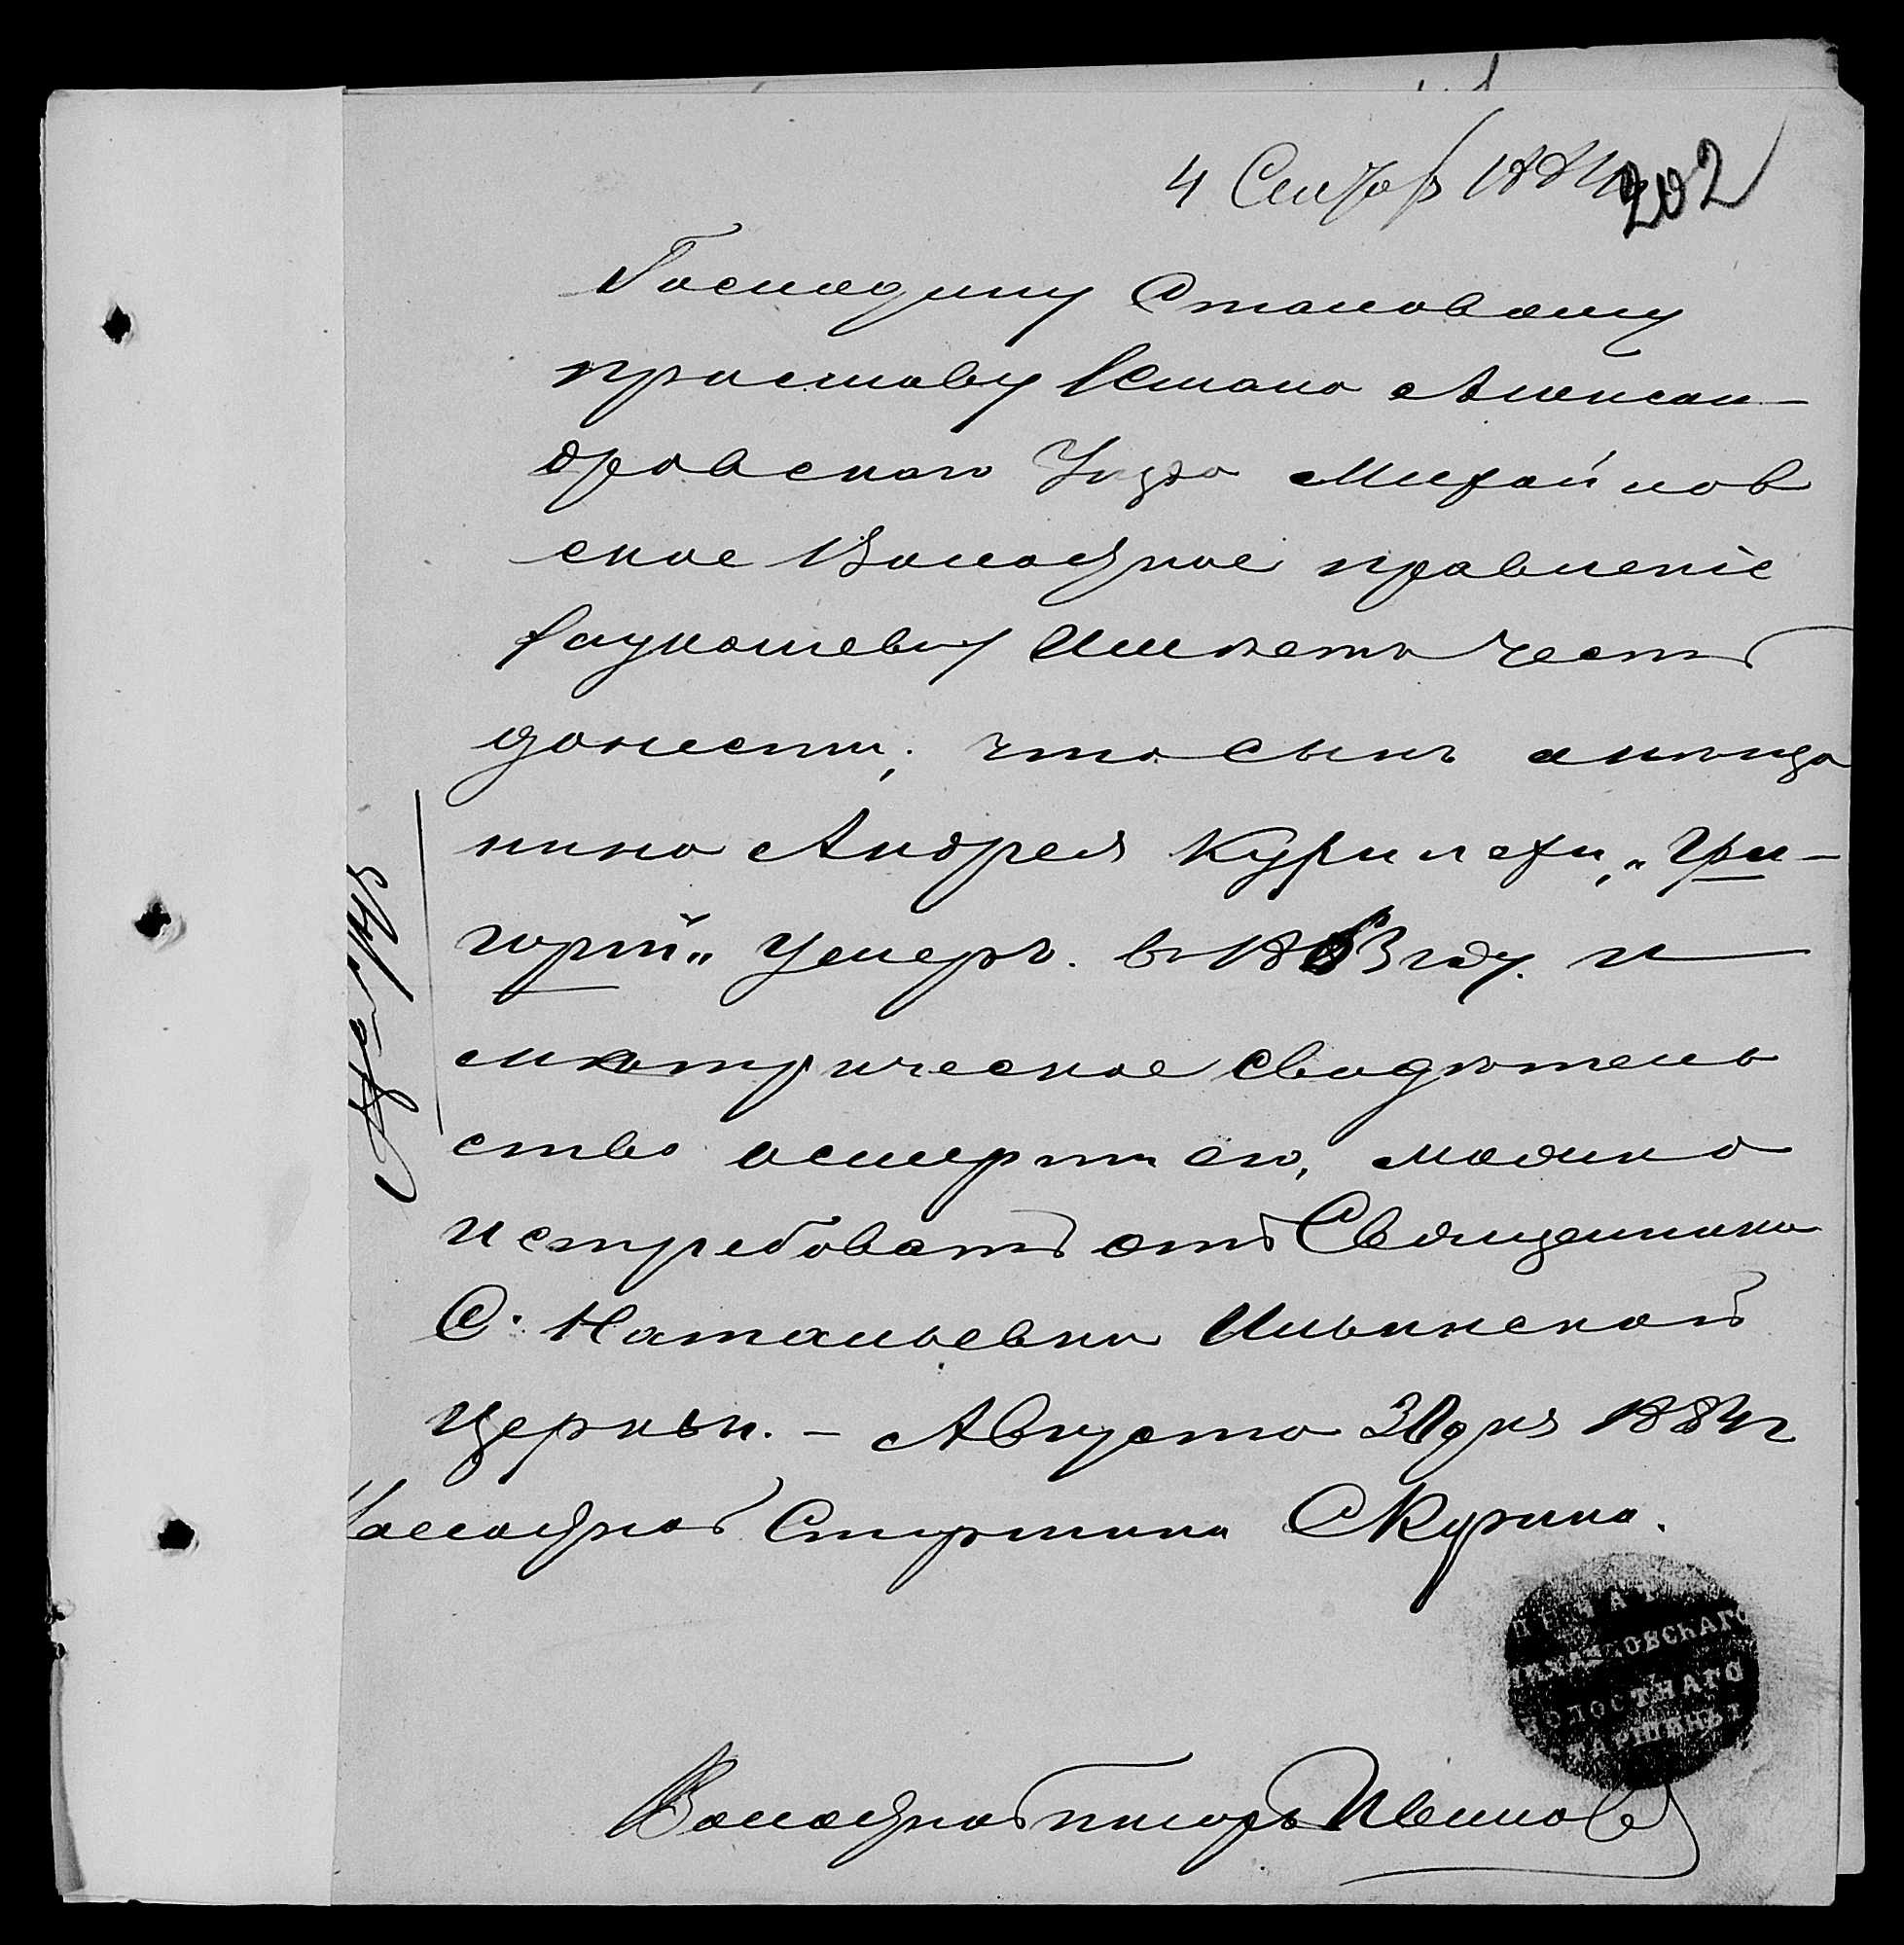 4 Сентяб 1884
202
Господину Становому
приставу 1 Стана Алексан-
дровскаго Уезда Михайлов
ское Волостное правленіе
имѣетъ честь
донести, что сынъ
нина Андрея Курилехи, „Гри-
горій“ умеръ. в 1863 году. и
метрическое свидѣтель
ство осмерти его, можно
истребовать отъ Священника
С. Натальевки Ильинской
Церкви. – Августа 30 дня 1884 г
Волостной Старшина Скурика.
ПЕЧАТЬ
МИХАЙЛОВСКАГО
ВОЛОСТНАГО
СТАРШИНЫ
Волостной писарь